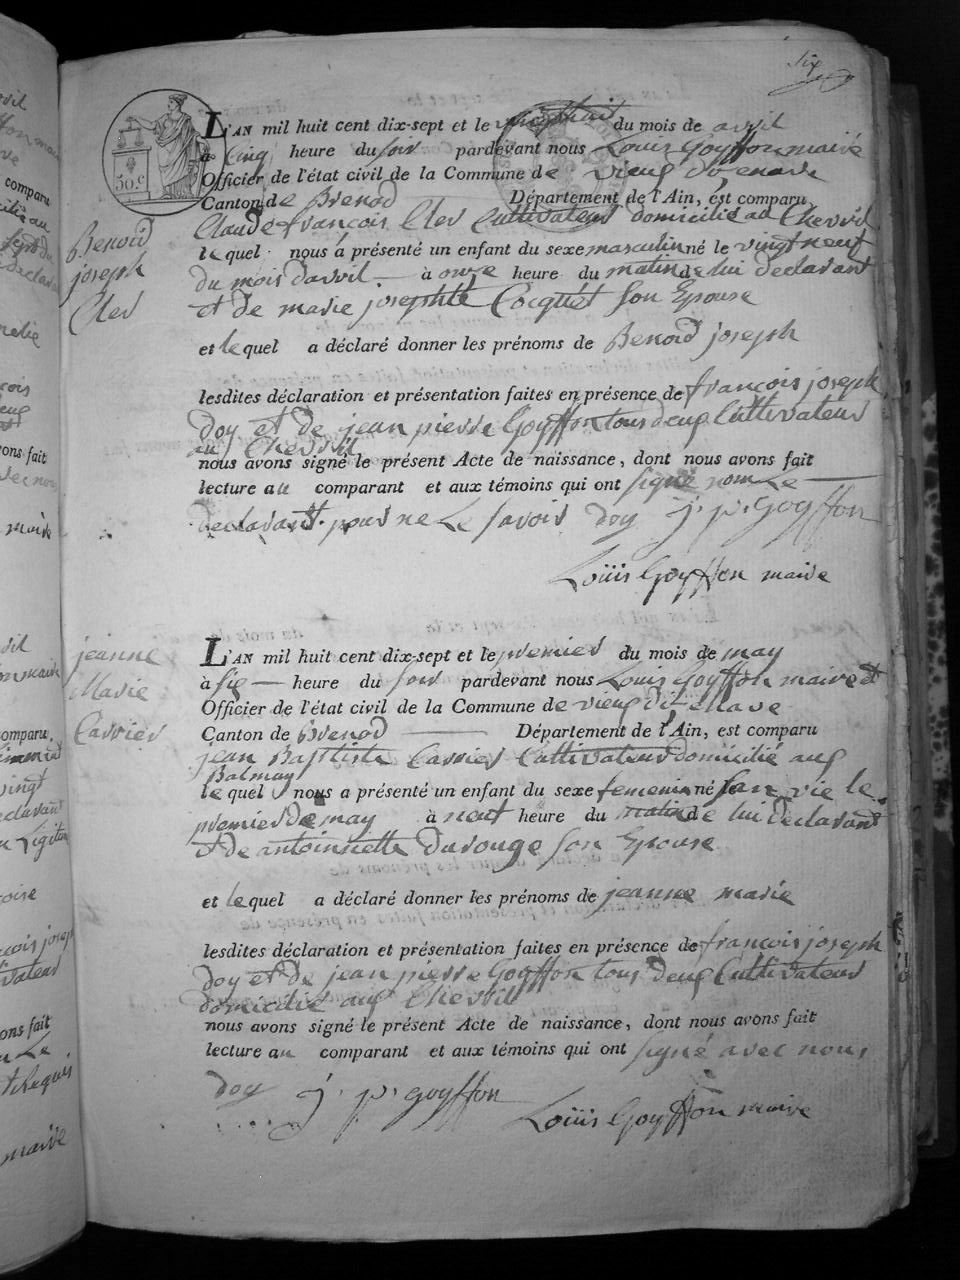 six
50.c
L'AN mil huit cent dix-sept et le du mois de avril
à Cinq heure du soir pardevant nous Louis Goyffon maire
Officier de l'état civil de la Commune de vieux d'izenave
Canton de Brenod Département de l'Ain, est comparu
Claude françois Cler Cultivateur domicilié au Chevril
lequel nous à présenté un enfant du sexe masculin né le vingt neuf
du mois davril à onze heure du matin de lui declarant
et de marie josephte Cocquet son Epouse
Benoid
joseph
Cler
et le quel a déclaré donner les prénoms de Benoid joseph
lesdites déclaration et présentation faites en présence de françois joseph
doy et de jean pierre Goyffon tous deux Cultivateur
au Chevril
nous avons signé le présent Acte de naissance, dont nous avons fait
lecture au comparant et aux témoins qui ont signé non Le
declarant pour ne Le savoir doy j. p. Goyffon
Louis Goyffon maire
jeanne
Marie
Carrier
L'AN mil huit cent dix-sept et le premier du mois de may
à six heure du soir pardevant nous Louis Goyffon maire et
Officier de l'état civil de la Commune de vieux d'izenave
Canton de Brenod Département de l'Ain, est comparu
jean Baptiste Carrier Cultivateur domicilié aux
Balmay
le quel nous a présenté un enfant du sexe femenin né lan vie le
premier de may à neuf heure du matin de lui declarant
et de antoinette durouge son Epouse
et le quel a déclaré donner les prénoms de jeanne marie
lesdites déclaration et présentation faites en présence de françois joseph
doy et de jean pierre Goyffon tous deux Cultivateur
domicilié aux Chevril
nous avons signé le présent Acte de naissance, dont nous avons fait
lecture au comparant et aux témoins qui ont signé avec nous
doy j. p. goyffon
Louis Goyffon maire